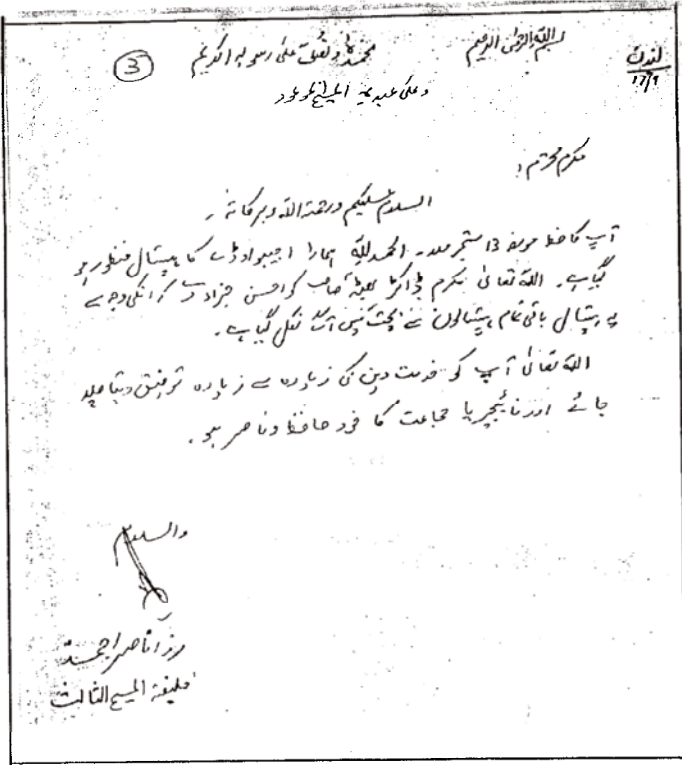 لندن
17/9
بسم اللہ الرحمن الرحیم
نحمدہ ونصلی علی رسولہ الکریم
3
وعلی عبدہ المسیح الموعود
مکرم محترم!
السلام علیکم ورحمتہ اللہ وبرکاتہ،
آپ کا خط مورخہ 13 ستمبر ملا۔ الحمدللہ ہمارا اجیبواوڈے کا ہسپتال منظور ہو
گیا ہے۔ اللہ تعالیٰ مکرم ڈاکٹر بھٹہ صاحب کو احسن جزا دے کہ انکی وجہ سے
یہ ہسپتال باقی تمام ہسپتالوں سے آگے نکل گیا ہے۔
اللہ تعالیٰ آپ کو خدمت دین کی زیادہ سے زیادہ توفیق دیتا چلا
جائے اور نائیجیریا جماعت کا خود حافظ و ناصر ہو۔
والسلام
مرزا ناصر احمد
خلیفۃ المسیح الثالث